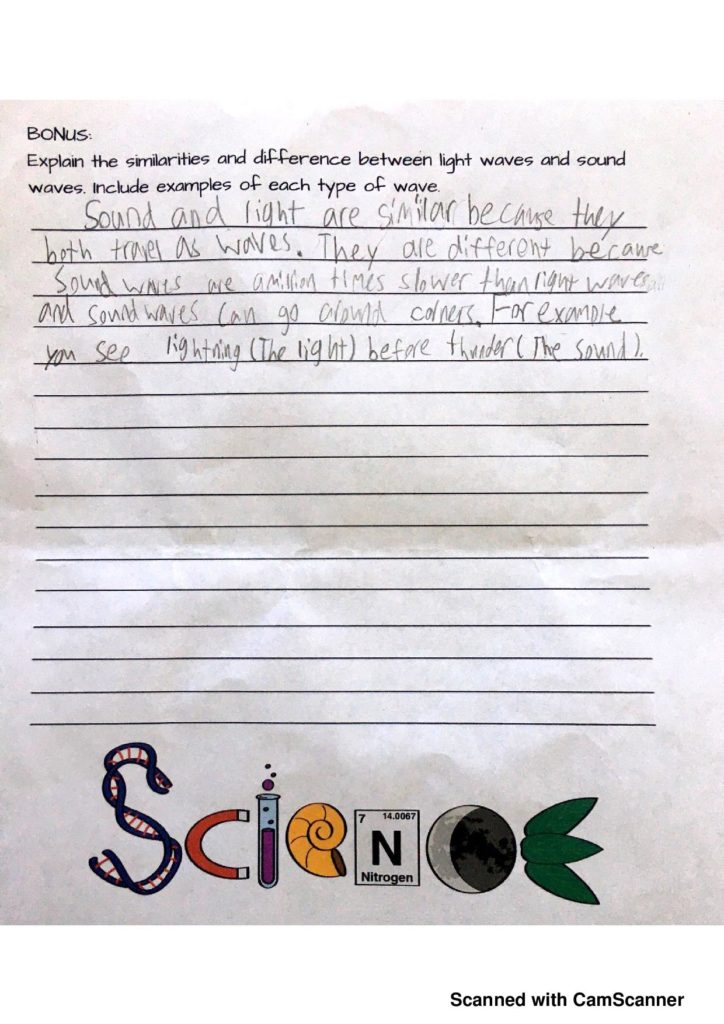 BONUS:
Explain the similarities and difference between light waves and sound
waves. Include examples of each type of wave.
Sound and light are similar because they
both travel as waves. They are different because
Sound waves are a million times slower than light waves
and sound waves can go around corners. For example
you see lightning (The light) before thunder (The sound).
7 14.0067
N
Nitrogen
Scanned with CamScanner